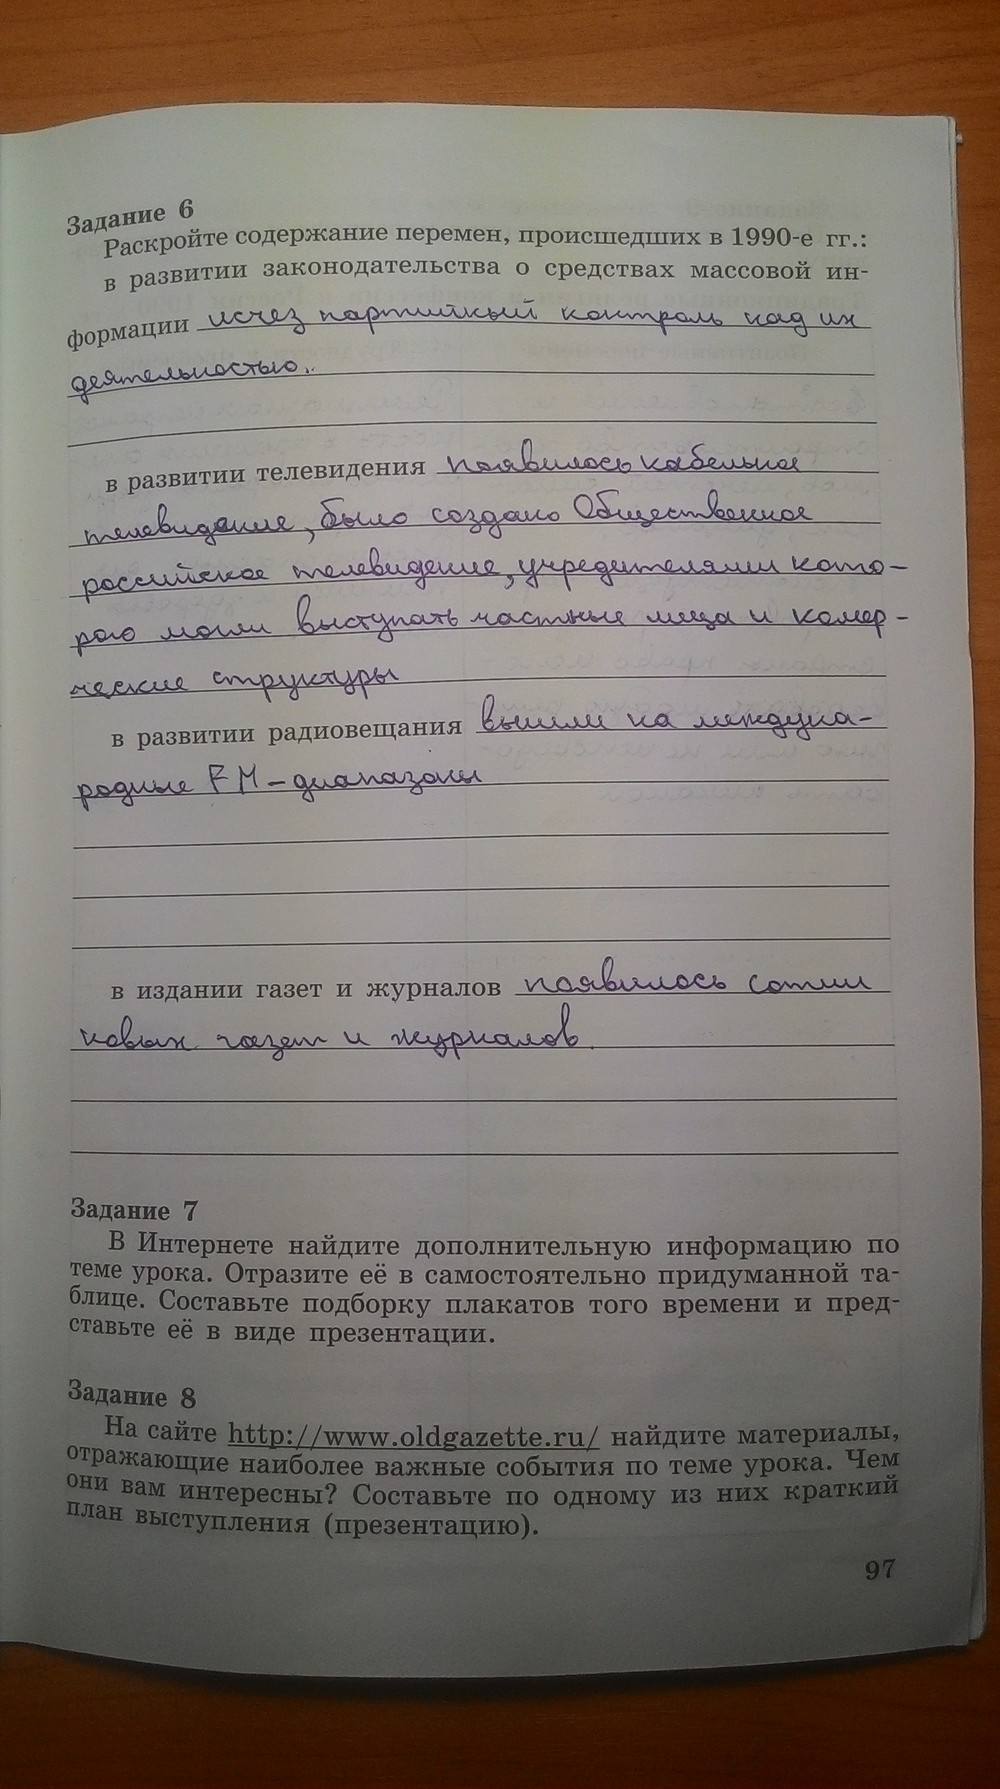 Задание 6
Раскройте содержание перемен, происшедших в 1990-е гг.:
в развитии законодательства о средствах массовой ин-
формации исчез партийный контроль над их
деятельностью.
в развитии телевидения появилось кабельное
телевидение, было создано Общественное
российское телевидение, учредителями кото-
рого могли выступать частные лица и комер-
ческие структуры
в развитии радиовещания вышли на междуна-
родные FM-диапазоны
в издании газет и журналов появилось сотни
новых газет и журналов.
Задание 7
В Интернете найдите дополнительную информацию по
теме урока. Отразите её в самостоятельно придуманной та-
блице. Составьте подборку плакатов того времени и пред-
ставьте её в виде презентации.
Задание 8
На сайте http://www.oldgazette.ru/ найдите материалы,
отражающие наиболее важные события по теме урока. Чем
они вам интересны? Составьте по одному из них краткий
план выступления (презентацию).
97